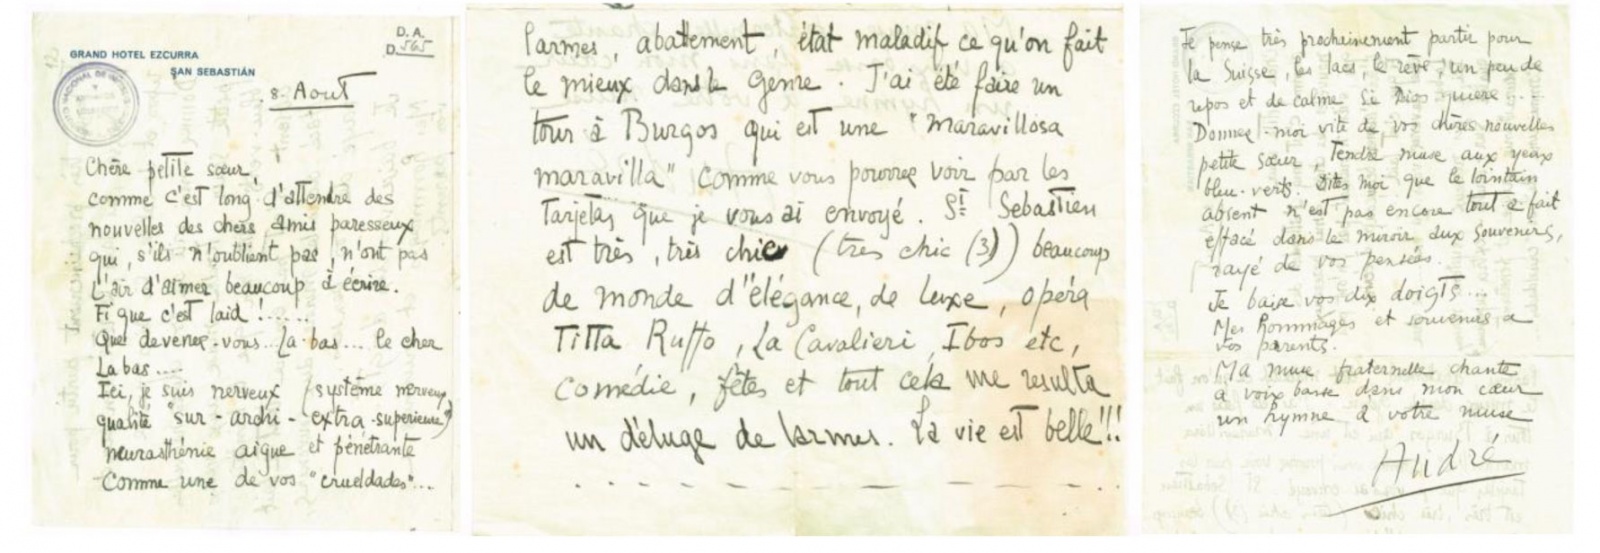 D. A.
D. 565
GRAND HOTEL EZCURRA
SAN SEBASTIÁN
8. Aout
Chère petite sœur,
comme c'est long d'attendre des
nouvelles des chers amis paresseux
qui, s'ils n'oublient pas, n'ont pas
l'air d'aimer beaucoup à écrire.
Fi que c'est laid !......
Que devenez-vous.. La-bas... le cher
La bas....
Ici, je suis nerveux (système nerveux
qualité "sur-ardri-extra-superieure)
neurasthénie aigue et pénétrante
Comme une de vos "crueldades"...
larmes, abattement, état maladif ce qu'on fait
le mieux dans le genre. J'ai été faire un
tour à Burgos qui est une "maravillosa
maravilla" comme vous pourrez voir par les
Tarjetas que je vous ai envoyé. St Sebastien
est très, très chic (très chic (3)) beaucoup
de monde d"élégance, de luxe, opéra
Titta Ruffo, La Cavalieri, Ibos etc,
comédie, fêtes et tout cela me resulta
un déluge de larmes. La vie est belle!!.
Je pense très prochainement partir pour
la Suisse, les lacs, le rêve, un peu de
repos et de calme Si Dios quiere...
Donnez-moi vite de vos chères nouvelles
petite sœur, Tendre muse aux yeux
bleu-verts. Dites moi que le lointain
absent n'est pas encore tout a fait
effacé dans le miroir aux souvenirs,
rayé de vos pensées.
Je baise vos dix doigts...
Mes hommages et souvenirs a
vos parents.
Ma muse fraternelle chante
a voix basse dans mon cœur
un hymne à votre muse
André